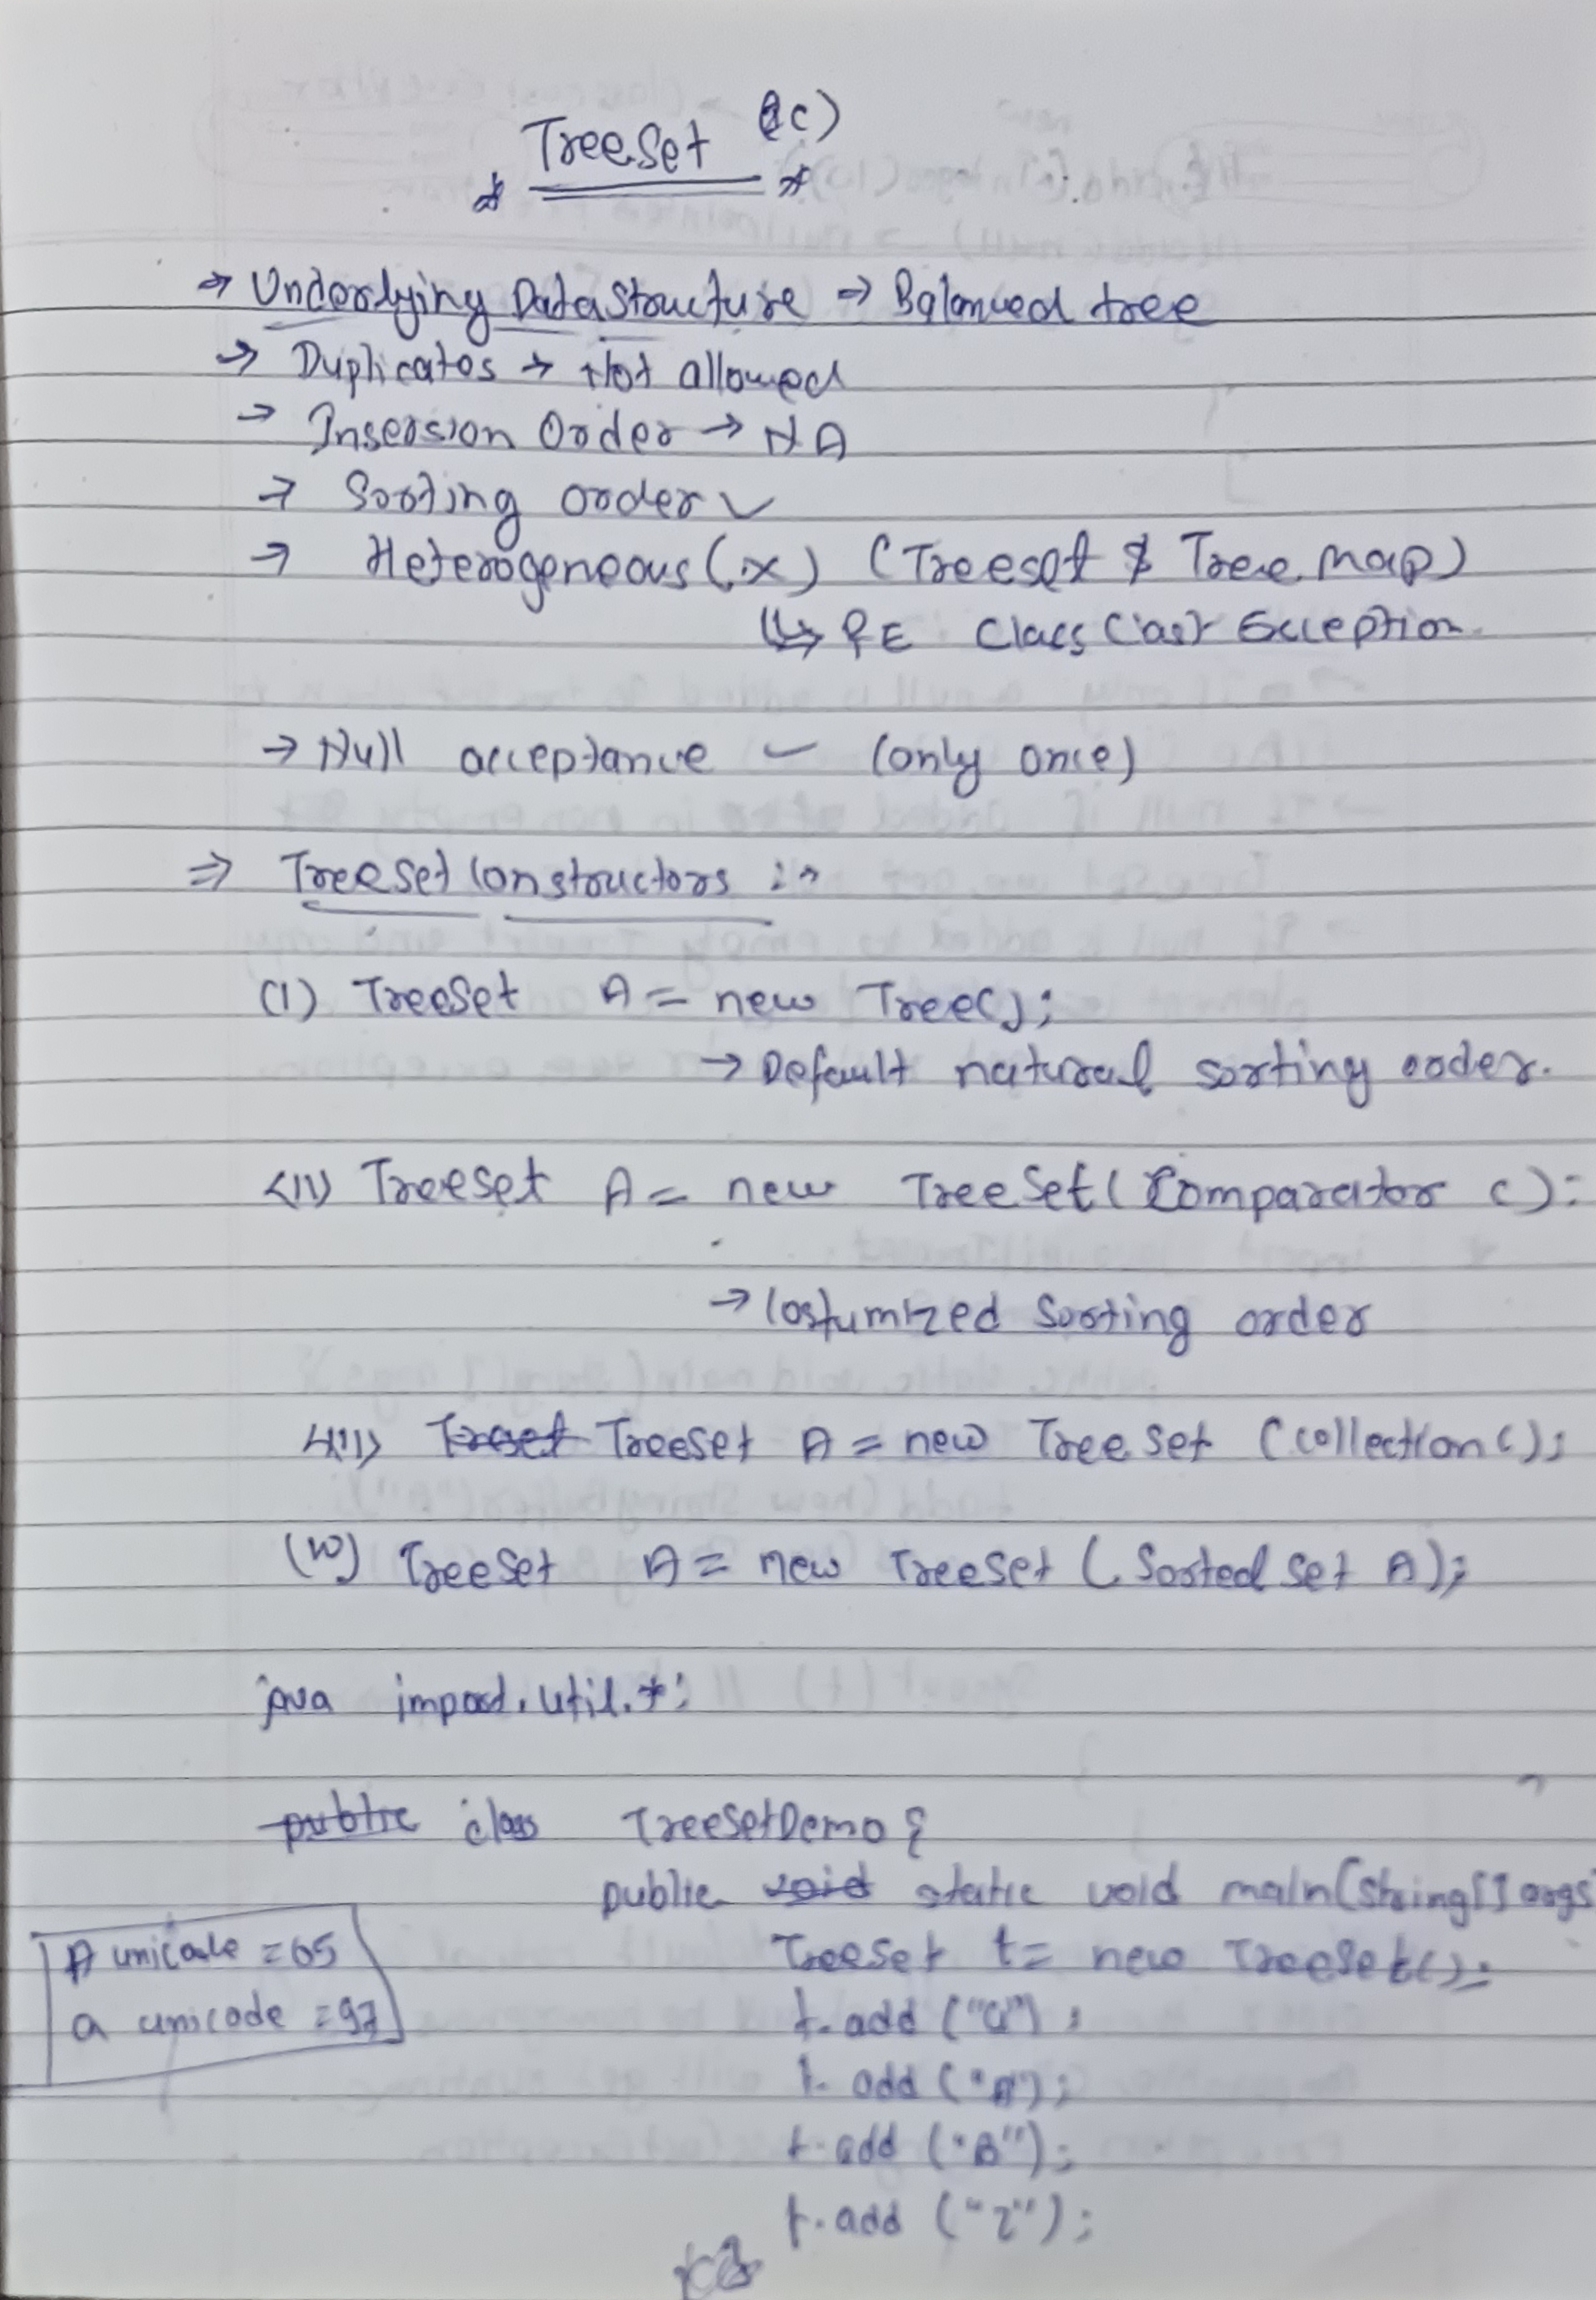 TreeSet (c)
→ Underlying DataStructure → Balanced tree
→ Duplicates → Not allowed
→ Insersion Order → NA
→ Sorting order ✓
→ Heterogeneous (x) (Treeset & Tree Map)
↳ RE ClassCast Exception
→ Null acceptance ✓ (only once)
⇒ Treeset Constructors :-
(I) TreeSet A = new Tree();
→ Default natural sorting order.
(II) Treeset A = new TreeSet(Comparator c);
→ Costumized Sorting order
(III) Treset Treeset A = new Tree set (Collection c);
(IV) TreeSet A = new TreeSet (Sorted Set A);
java import.util.*;
public class TreeSetDemo {
public void static void main(String[] args
A unicode = 65
Treeset t = new TreeSet();
a unicode = 97
t.add ("a");
t.add ("A");
t.add ("B");
t.add ("z");